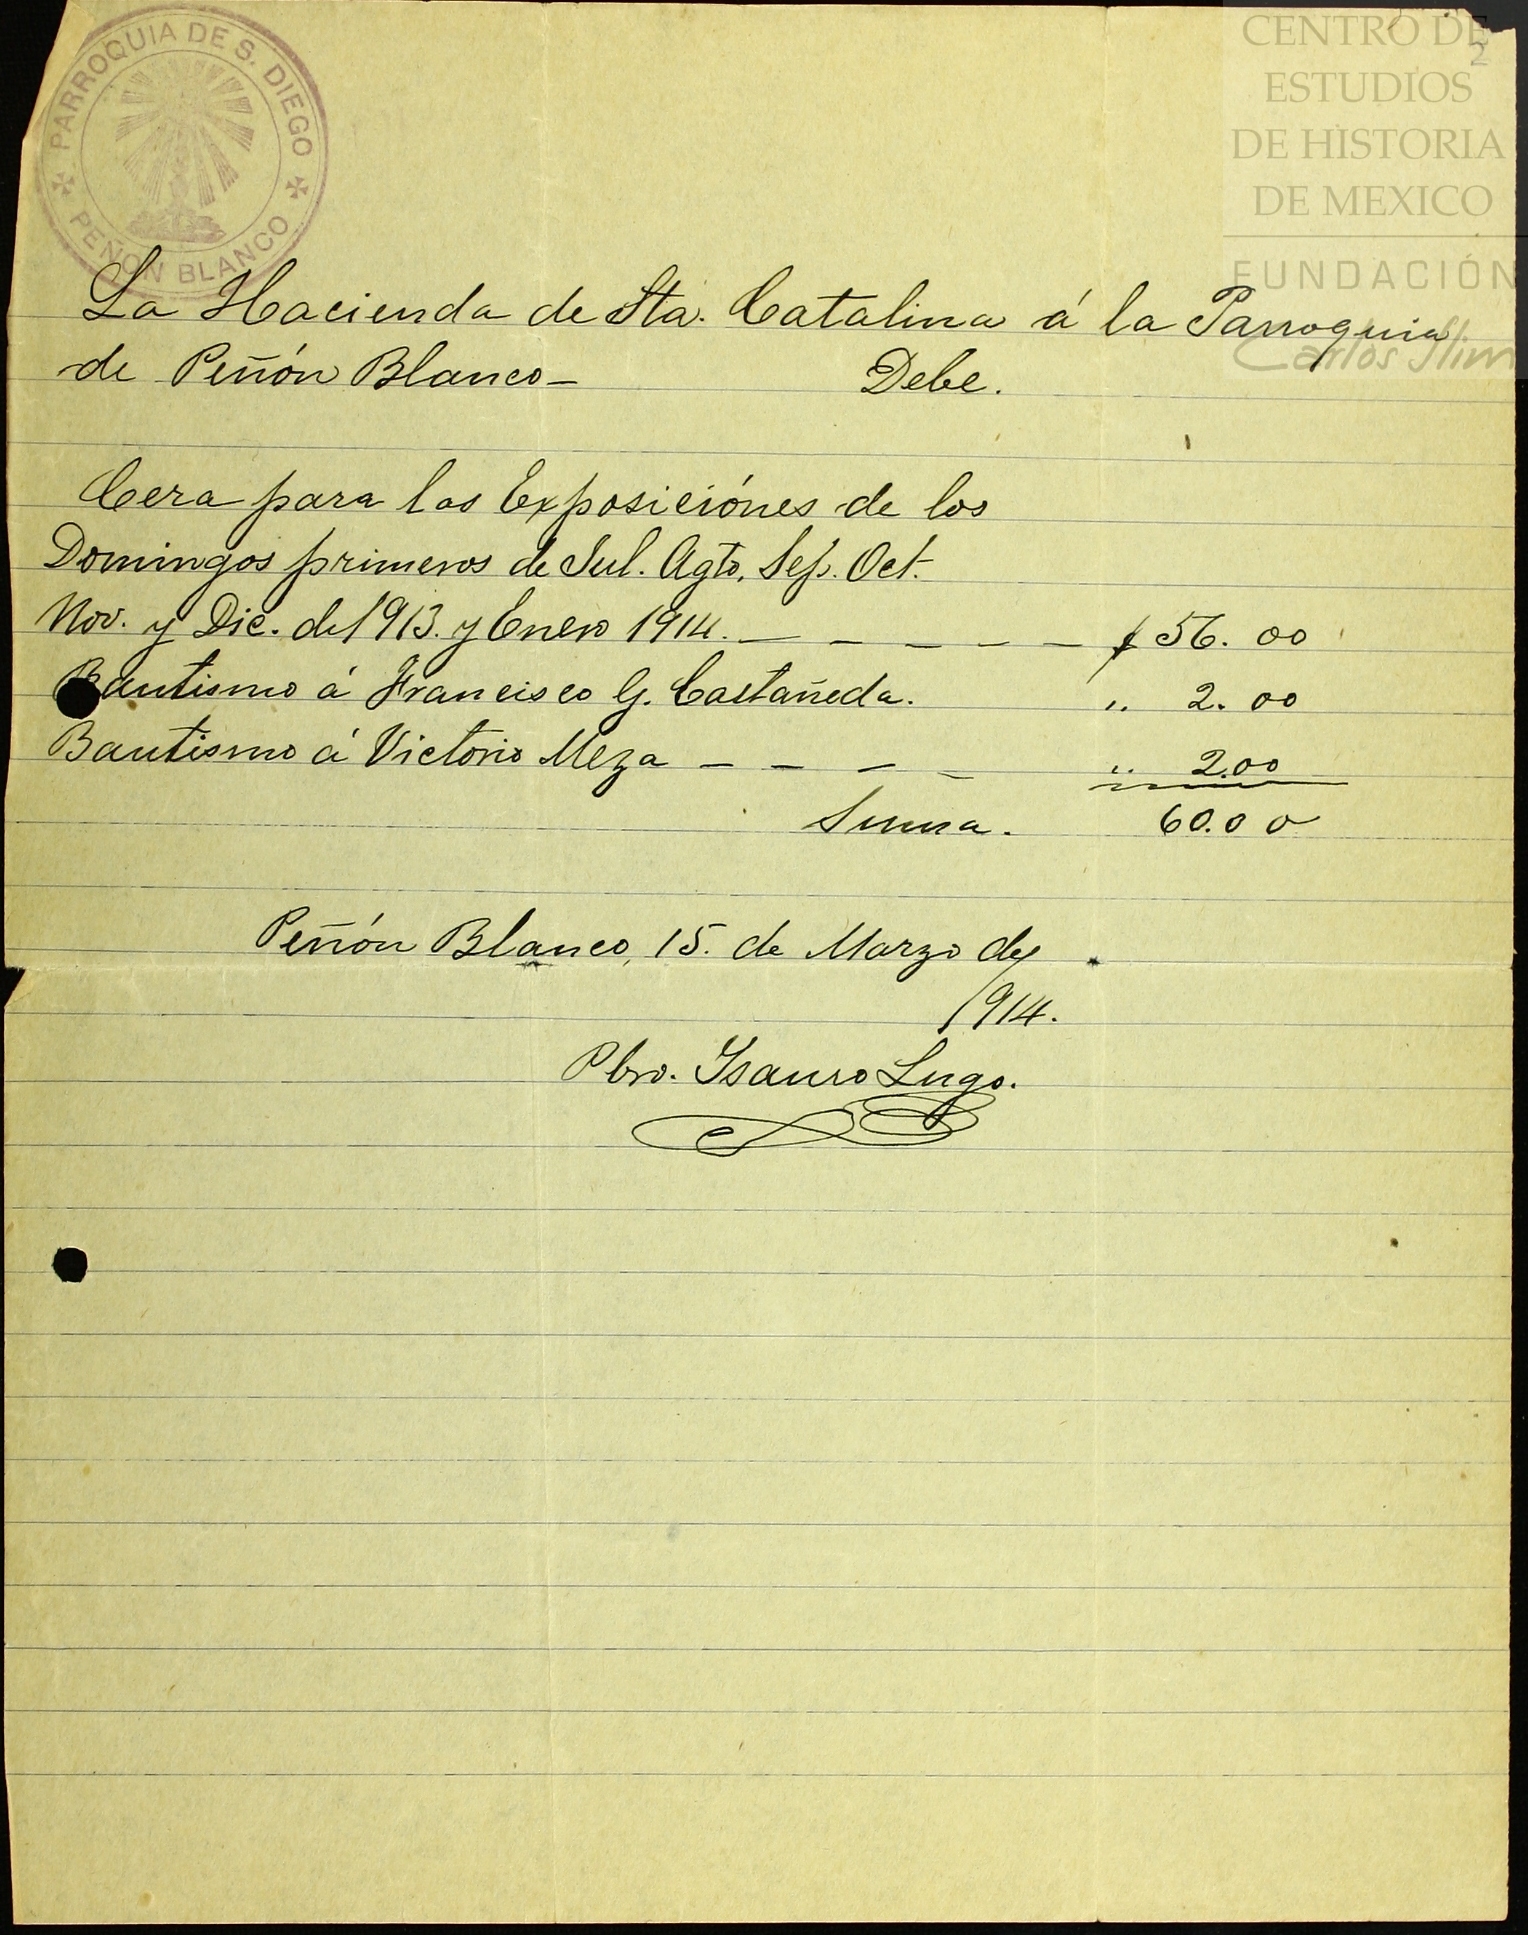 PARROQUIA DE S. DIEGO
PEÑON BLANCO
CENTRO DE
ESTUDIOS
DE HISTORIA
DE MEXICO
FUNDACIÓN
Carlos Slim
2
La Hacienda de Sta. Catalina á la Parroquia
de Peñón Blanco— Debe.
Cera para las Exposiciónes de los
Domingos primeros de Jul. Agto. Sep. Oct.
Nov. y Dic. de 1913. y Enero 1914. — — — — — $ 56. 00
Bautismo á Francisco G. Castañeda. „ 2. 00
Bautismo á Victorio Meza — — — — „ 2.00
Suma. 60.00
Peñón Blanco, 15. de Marzo de
1914.
Pbro. Ysauro Lugo.